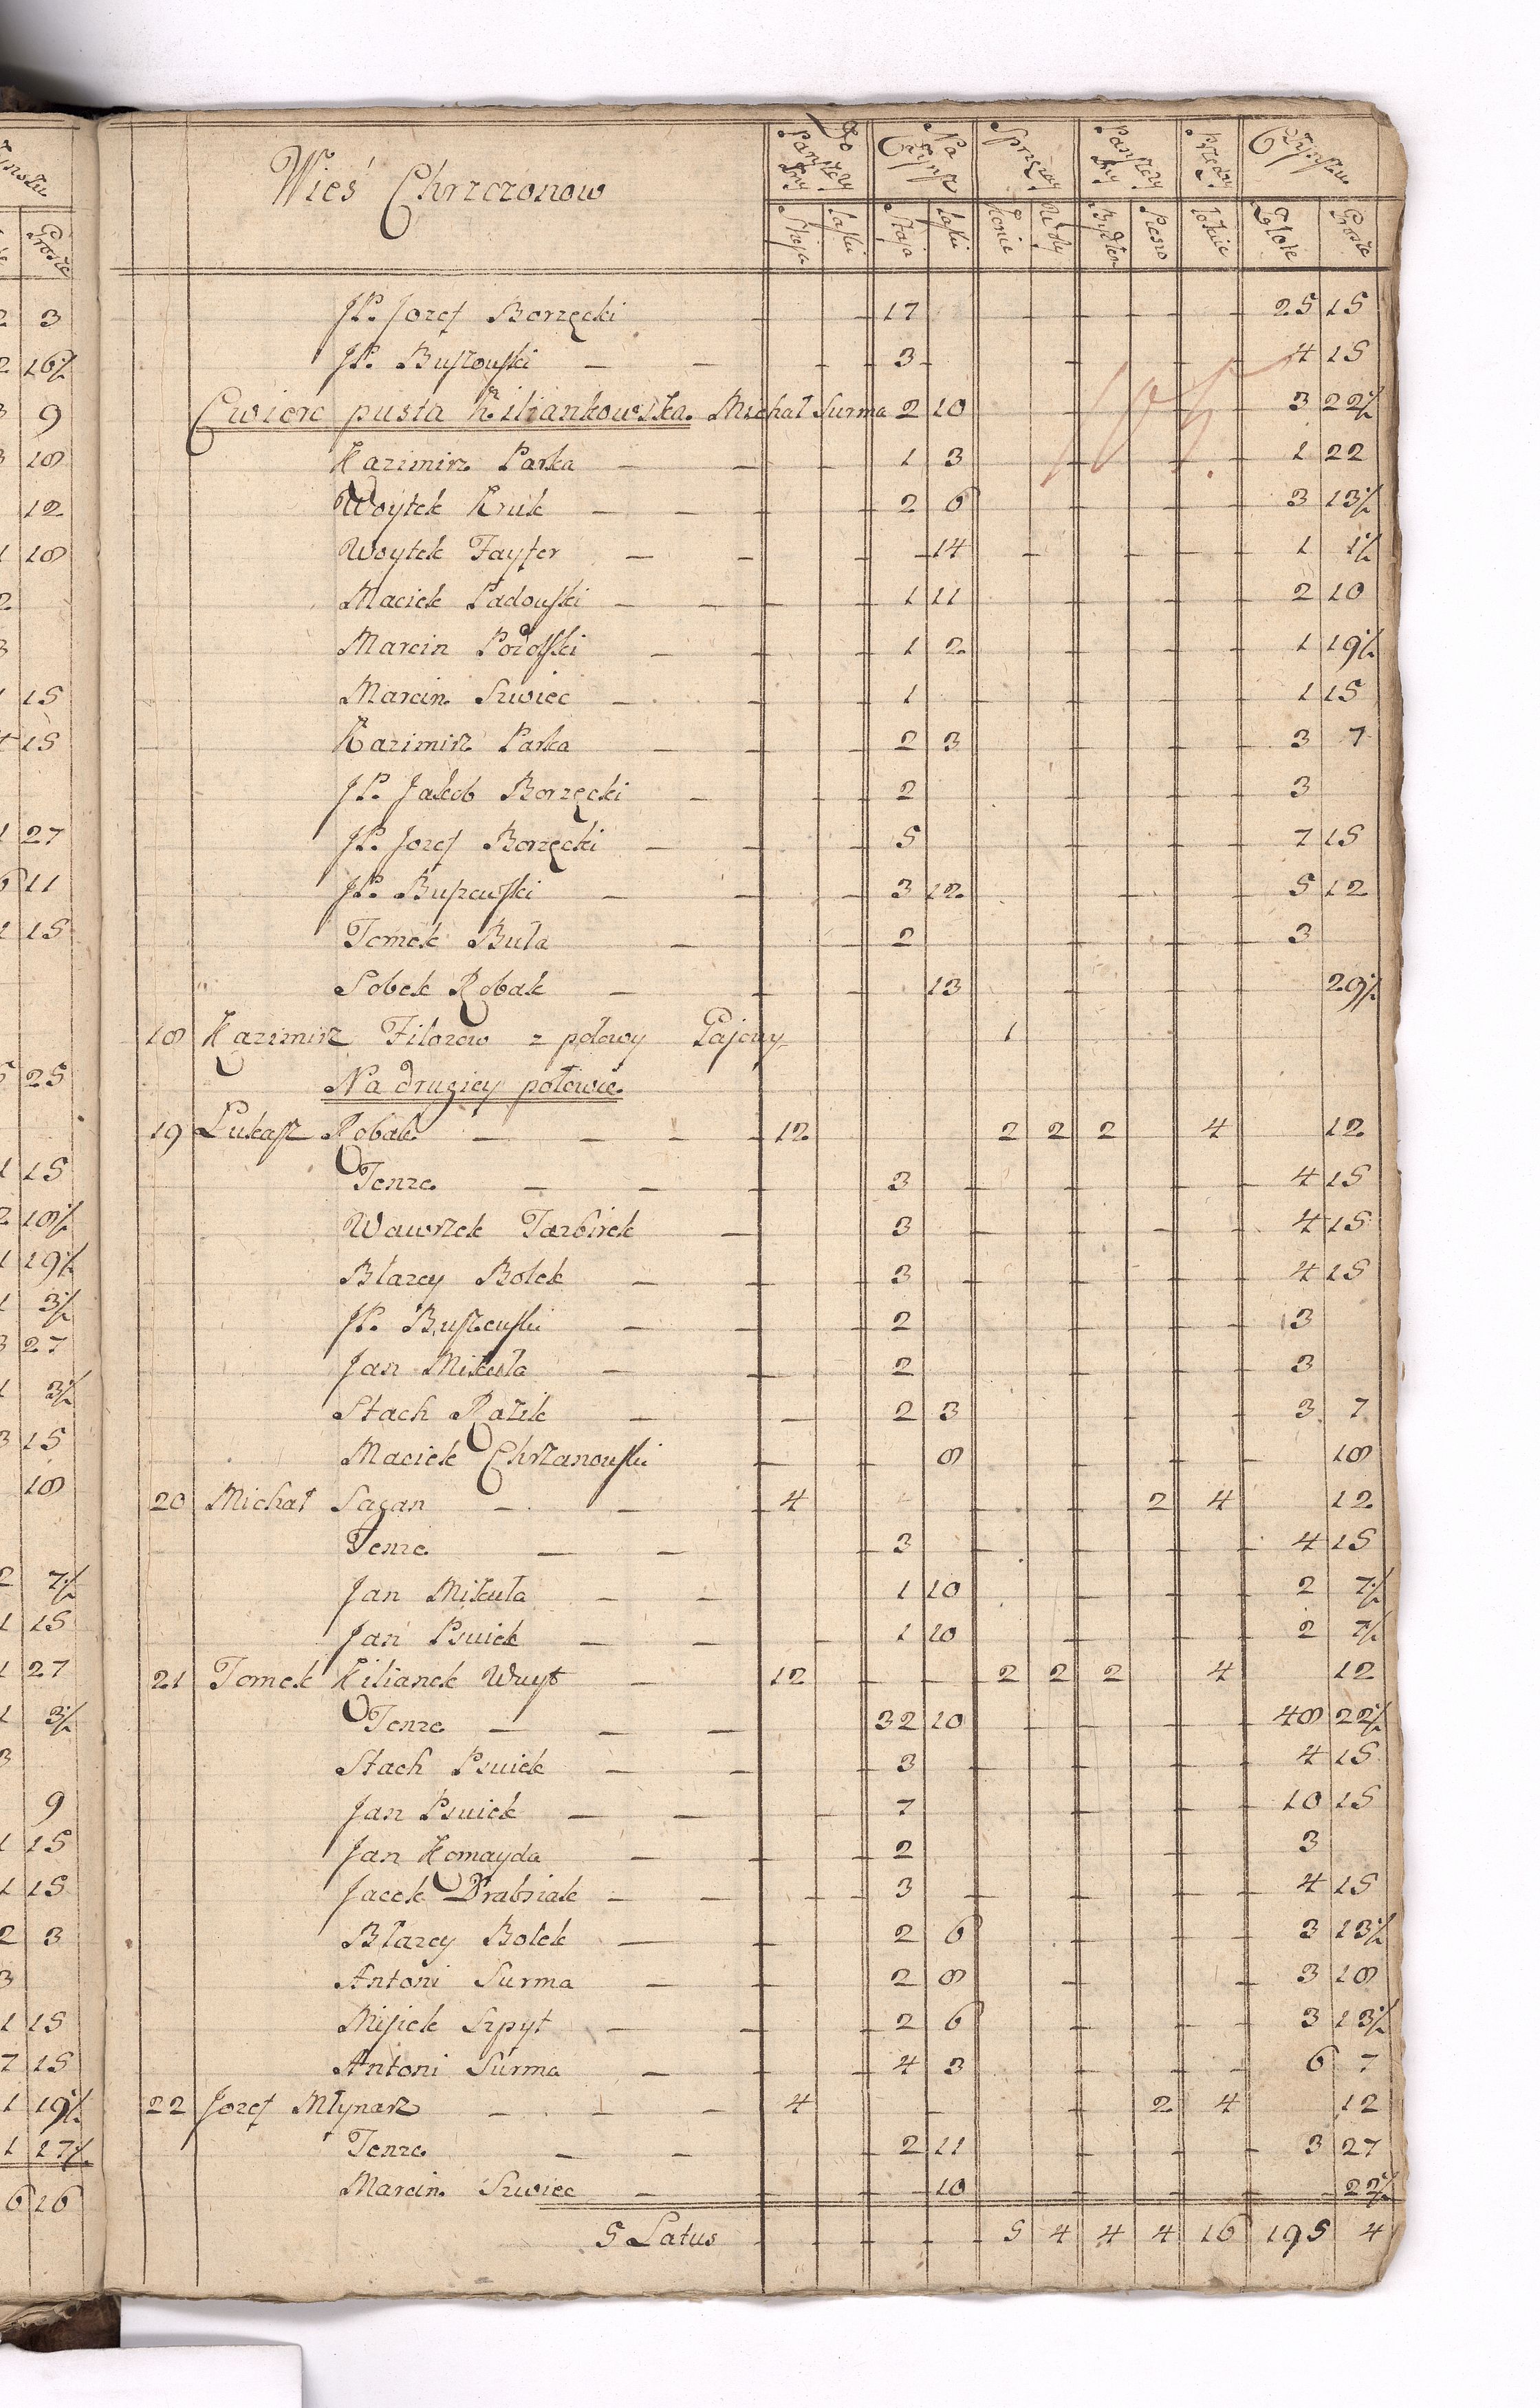 Wieś Chrzczonow
Do Panszczyzny Na Czynsz Sprzęzay Panszczyzny Przędzy Czynszu
Staja Laski Staja Laski Konie Woły Bydłem Pieszo Łokcie Złote Grosze
JP. Jozef Borzęcki 17 25 15
JP. Buszouski 3 4 15
Cwierc pusta Kiliankowska. Michał Surma 2 10 3 22½
Kazimirz Parka 1 3 1 22
Woytek Kruk 2 6 3 13½
Woytek Fayfer 14 1 1½
Maciek Padouski 1 11 2 10
Marcin 1 2 1 19½
Marcin Szwiec 1 1 15
Kazimirz Parka 2 3 3 7
JP. Jakob Borzęcki 2 3
JP. Jozef Borzęcki 5 7 15
JP. Buszewski 3 12 5 12
Tomek Buła 2 3
Sobek Robak 13 29½
18 Kazimirz Filozow z połowy Gajowy 1
Na drugiey połowie.
19 Łukasz Robak 12 2 2 2 4 12
Tenze 3 4 15
Wawrzek Tarbirek 3 4 15
Błazey Bołek 3 4 15
JP. Buszeuski 2 3
Jan Mikuła 2 3
Stach Kazik 2 3 3 7
Maciek Chrzanouski 8 18
20 Michał Sagan 4 2 4 12
Tenze 3 4 15
Jan Mikuła 1 10 2 7½
Jan Psuiek 1 10 2 7½
21 Tomek Kilianek Wuyt 12 2 2 2 4 12
Tenze 32 10 48 22½
Stach Psuiek 3 4 15
Jan Psuiek 7 10 15
Jan Komayda 2 3
Jacek Drabziak 3 4 15
Błazey Bołek 2 6 3 13½
Antoni Surma 2 8 3 18
Misiek Szpyt 2 6 3 13½
Antoni Surma 4 3 6 7
22 Jozef Młynarz 4 2 4 12
Tenze 2 11 3 27
Marcin Szwiec 10 22½
5 Latus 5 4 4 4 16 195 4